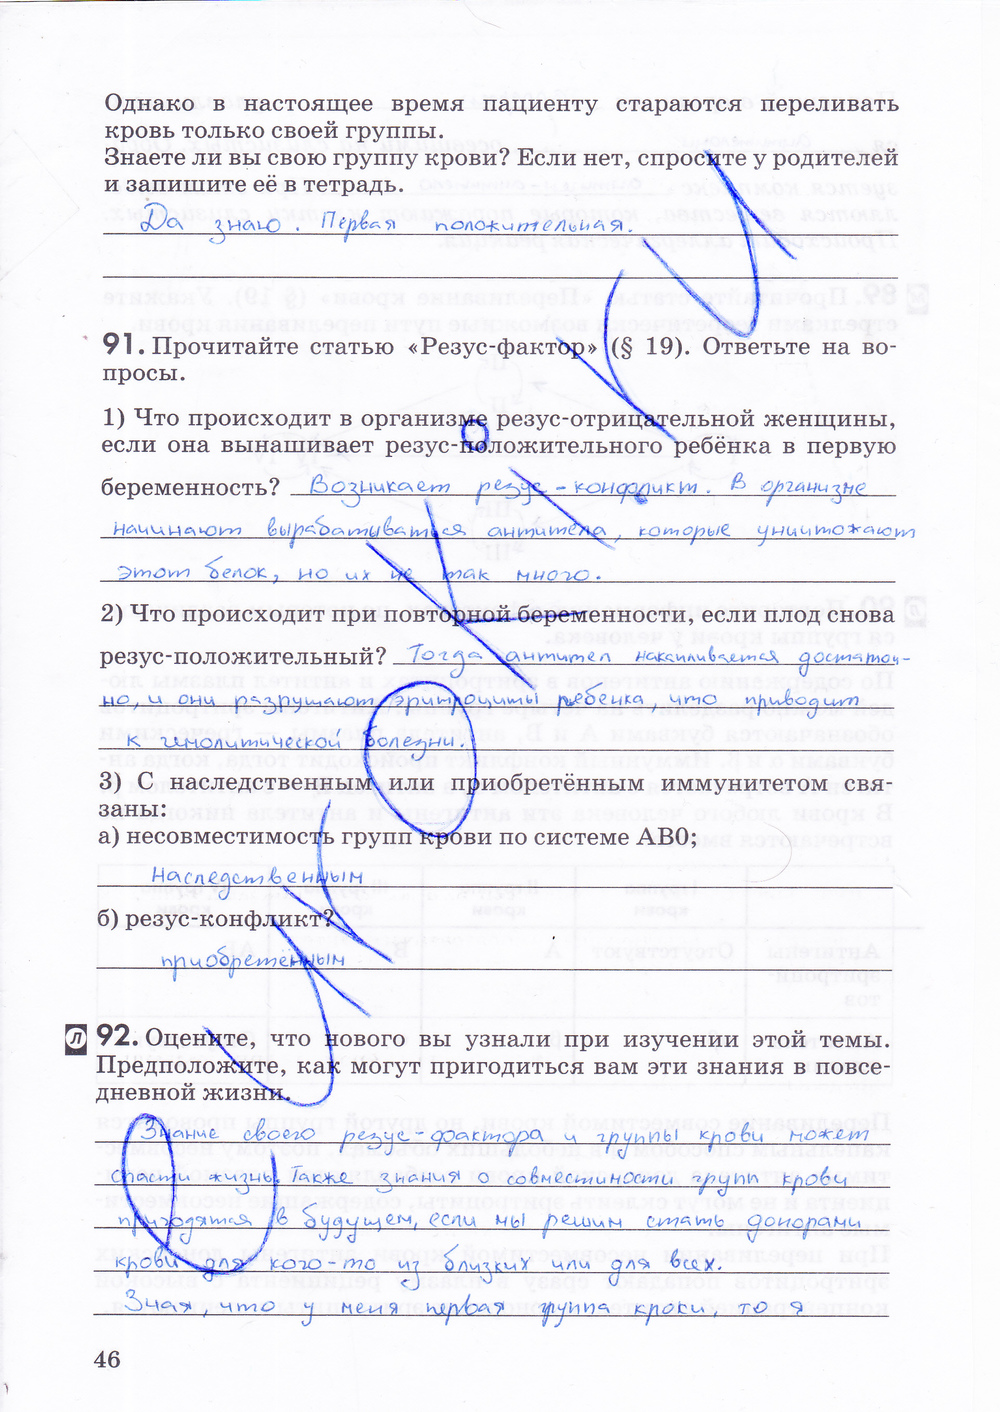 Однако в настоящее время пациенту стараются переливать
кровь только своей группы.
Знаете ли вы свою группу крови? Если нет, спросите у родителей
и запишите её в тетрадь.
Да знаю. Первая положительная.
91. Прочитайте статью «Резус-фактор» (§ 19). Ответьте на во-
просы.
1) Что происходит в организме резус-отрицательной женщины,
если она вынашивает резус-положительного ребёнка в первую
беременность? Возникает резус-конфликт. В организме
начинают вырабатываться антитела, которые уничтожают
этот белок, но их не так много.
2) Что происходит при повторной беременности, если плод снова
резус-положительный? Тогда антител накапливается достаточ-
но, и они разрушают эритроциты ребенка, что приводит
к гемолитической болезни.
3) С наследственным или приобретённым иммунитетом свя-
заны:
а) несовместимость групп крови по системе АВ0;
Наследственным
б) резус-конфликт?
приобретенным
л 92. Оцените, что нового вы узнали при изучении этой темы.
Предположите, как могут пригодиться вам эти знания в повсе-
дневной жизни.
Знание своего резус-фактора и группы крови может
спасти жизнь. Также знания о совместиности групп крови
пригодятся в будущем, если мы решим стать донорами
крови для кого-то из близких или для всех.
Зная, что у меня первая группа кроки, то я
46
йоквл.ком